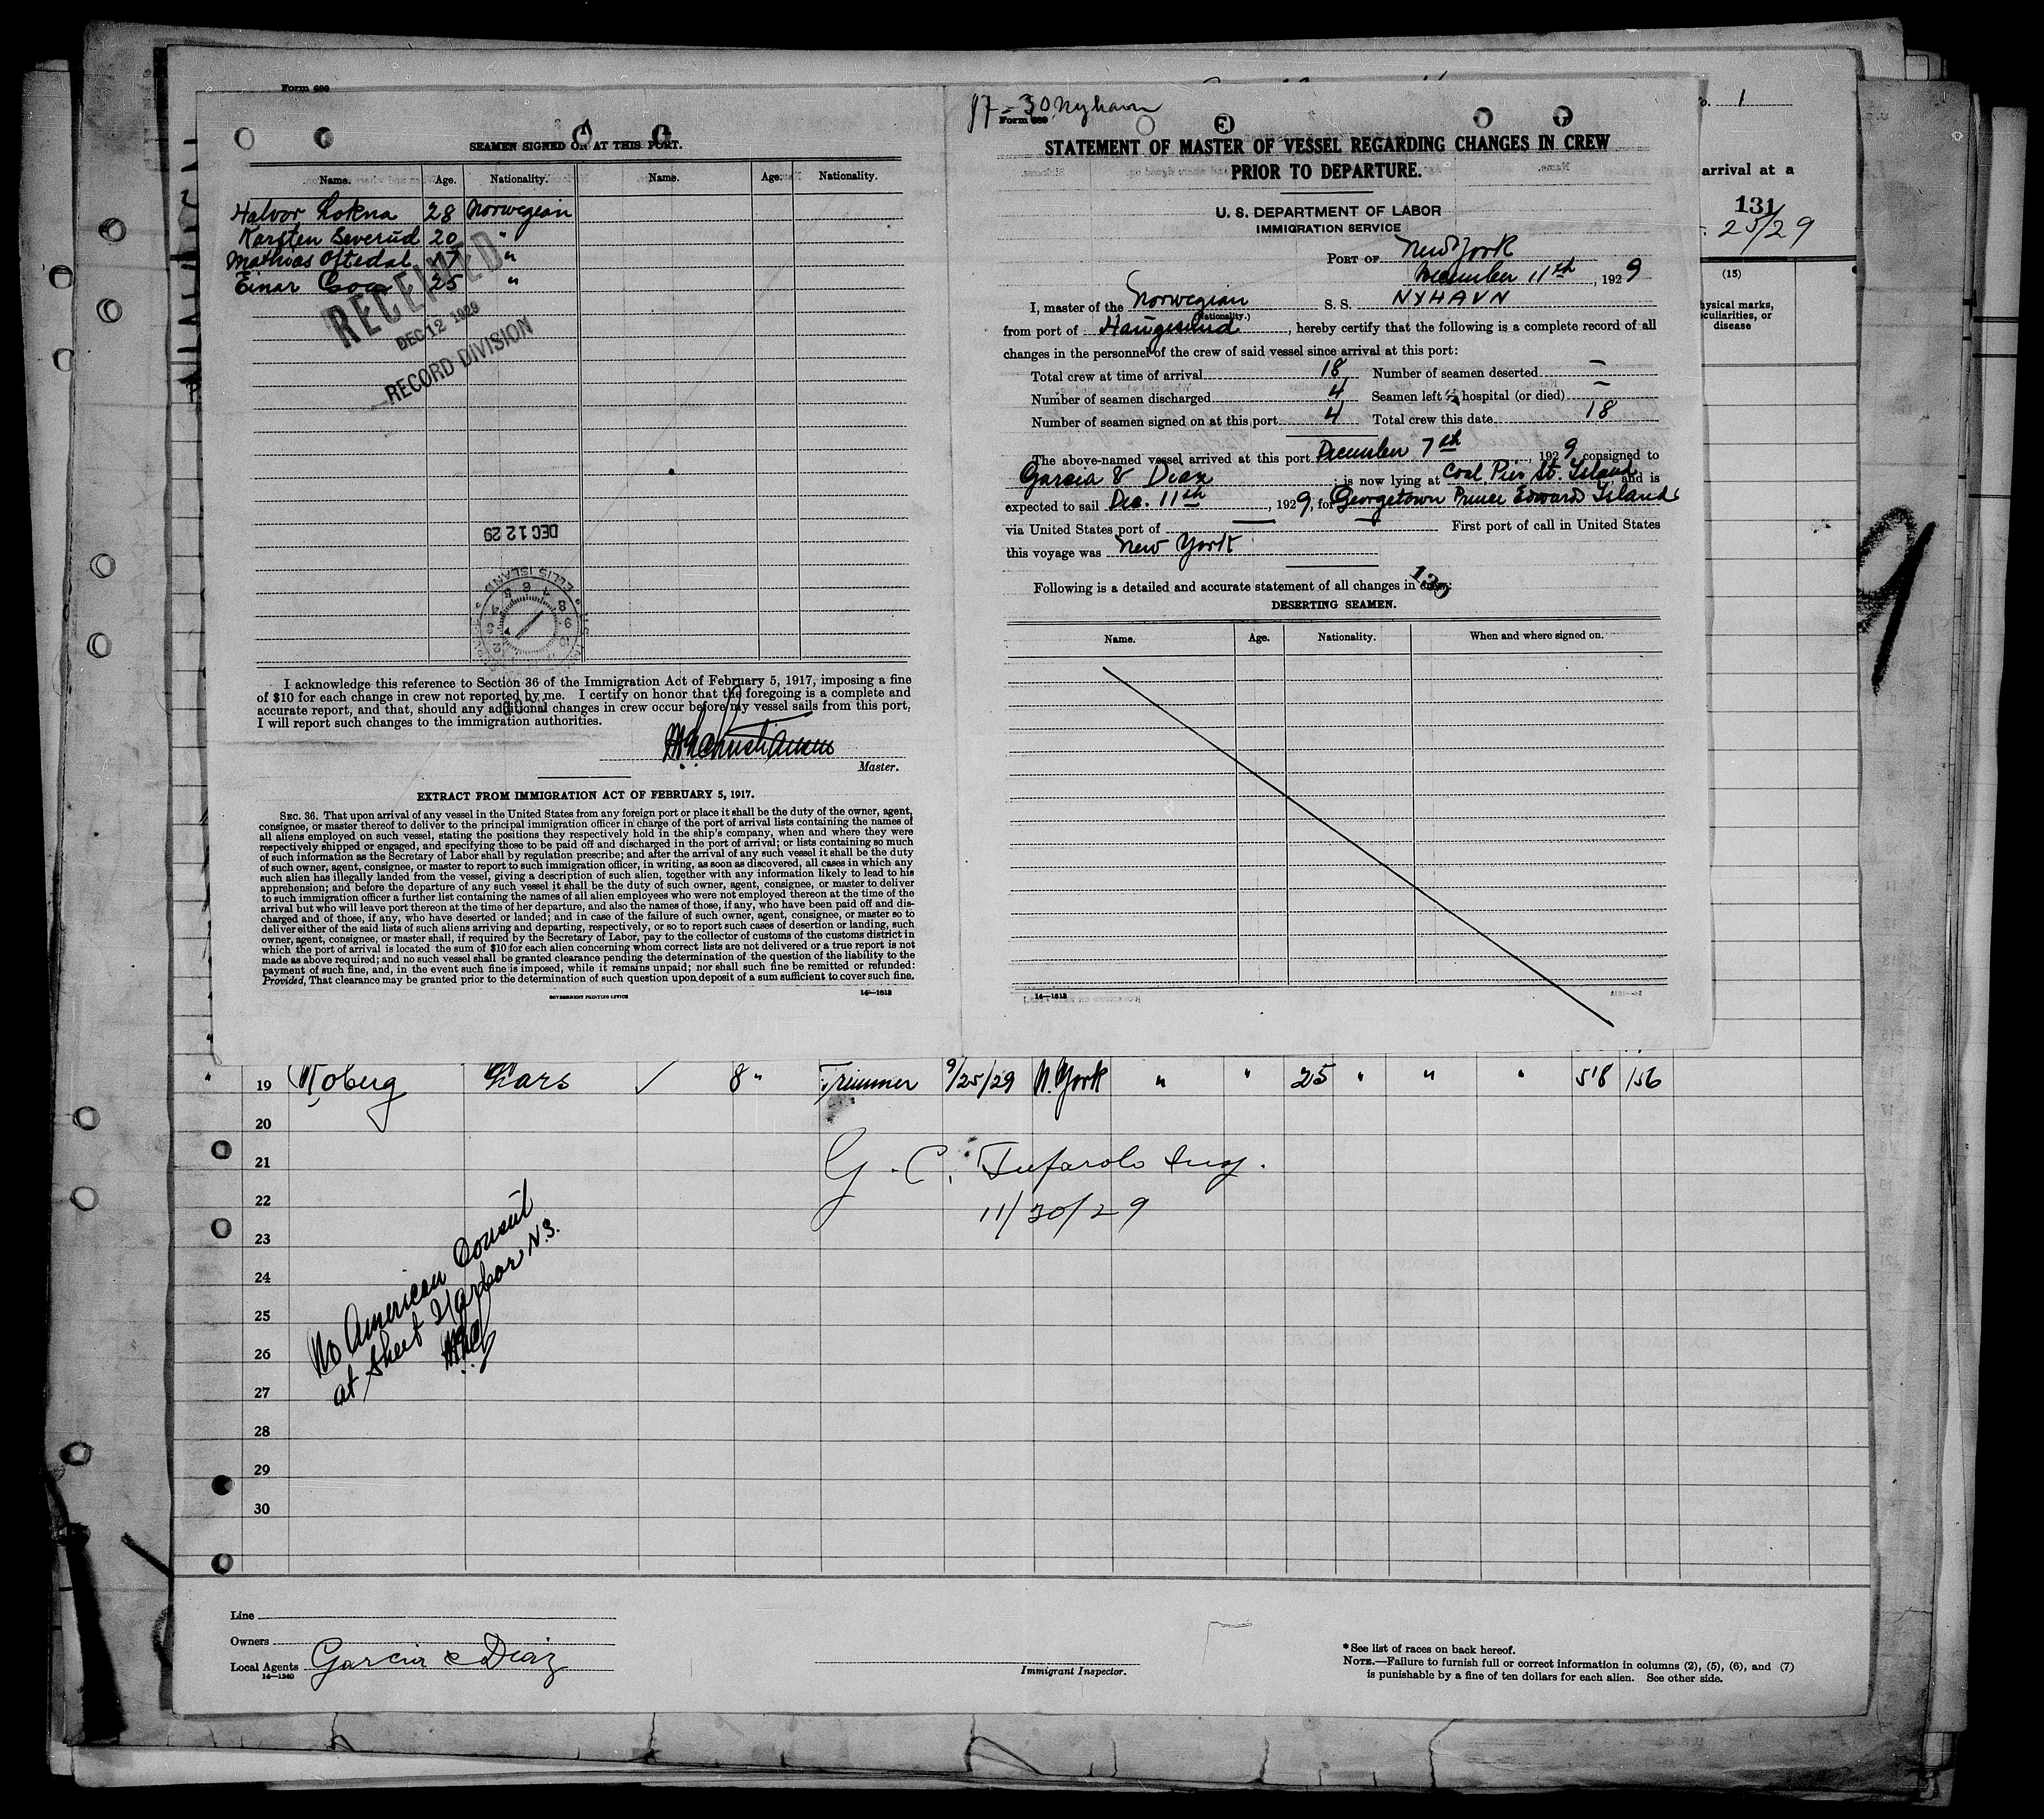 Form 680
SEAMEN SIGNED ON AT THIS PORT.
Name. Age. Nationality. Name. Age. Nationality.
Halvor Lokna 28 Norwegian
Karsten Severud 20 "
Mathias Oftedal "
Einar 25 "
RECEIVED
DEC 12 1929
RECORD DIVISION
DEC 12 29
ELLIS ISLAND
I acknowledge this reference to Section 36 of the Immigration Act of February 5, 1917, imposing a fine
of $10 for each change in crew not reported by me. I certify on honor that the foregoing is a complete and
accurate report, and that, should any additional changes in crew occur before my vessel sails from this port,
I will report such changes to the immigration authorities.
Master.
EXTRACT FROM IMMIGRATION ACT OF FEBRUARY 5, 1917.
SEC. 36. That upon arrival of any vessel in the United States from any foreign port or place it shall be the duty of the owner, agent,
consignee, or master thereof to deliver to the principal immigration officer in charge of the port of arrival lists containing the names of
all aliens employed on such vessel, stating the positions they respectively hold in the ship's company, when and where they were
respectively shipped or engaged, and specifying those to be paid off and discharged in the port of arrival; or lists containing so much
of such information as the Secretary of Labor shall by regulation prescribe; and after the arrival of any such vessel it shall be the duty
of such owner, agent, consignee, or master to report to such immigration officer, in writing, as soon as discovered, all cases in which any
such alien has illegally landed from the vessel, giving a description of such alien, together with any information likely to lead to his
apprehension; and before the departure of any such vessel it shall be the duty of such owner, agent, consignee, or master to deliver
to such immigration officer a further list containing the names of all alien employees who were not employed thereon at the time of the
arrival but who will leave port thereon at the time of her departure, and also the names of those, if any, who have been paid off and dis-
charged and of those, if any, who have deserted or landed; and in case of the failure of such owner, agent, consignee, or master so to
deliver either of the said lists of such aliens arriving and departing, respectively, or so to report such cases of desertion or landing, such
owner, agent, consignee, or master shall, if required by the Secretary of Labor, pay to the collector of customs of the customs district in
which the port of arrival is located the sum of $10 for each alien concerning whom correct lists are not delivered or a true report is not
made as above required; and no such vessel shall be granted clearance pending the determination of the question of the liability to the
payment of such fine, and, in the event such fine is imposed, while it remains unpaid; nor shall such fine be remitted or refunded:
Provided, That clearance may be granted prior to the determination of such question upon deposit of a sum sufficient to cover such fine.
GOVERNMENT PRINTING OFFICE 14—1612
17-30 Nyhavn
Form 680
STATEMENT OF MASTER OF VESSEL REGARDING CHANGES IN CREW
PRIOR TO DEPARTURE.
U. S. DEPARTMENT OF LABOR
IMMIGRATION SERVICE
PORT OF New York
December 11th, 1929
I, master of the Norwegian S. S. NYHAVN
(Nationality.)
from port of Haugesund, hereby certify that the following is a complete record of all
changes in the personnel of the crew of said vessel since arrival at this port:
Total crew at time of arrival 18 Number of seamen deserted —
Number of seamen discharged 4 Seamen left in hospital (or died) —
Number of seamen signed on at this port 4 Total crew this date 18
The above-named vessel arrived at this port December 7th, 1929, consigned to
Garcia & Diaz; is now lying at Coal Pier St. Island, and is
expected to sail Dec. 11th, 1929, for Georgetown Prince Edward Island
via United States port of — First port of call in United States
this voyage was New York
Following is a detailed and accurate statement of all changes in crew:
130
DESERTING SEAMEN.
Name. Age. Nationality. When and where signed on.
14—1612
1
arrival at a
131
25/29
(15)
hysical marks,
culiarities, or
disease
9
19 Koberg Lars ✓ 8 " Trimmer 9/25/29 N. York " " 25 " " " 5'8 156
20
21 G. C. Tufarolo Insp.
22 11/30/29
23
24
25
26
27
28
29
30
No American Consul
at Sheet Harbor N.S.
Line
Owners
Local Agents Garcia & Diaz
14—1240
Immigrant Inspector.
* See list of races on back hereof.
NOTE.—Failure to furnish full or correct information in columns (2), (5), (6), and (7)
is punishable by a fine of ten dollars for each alien. See other side.